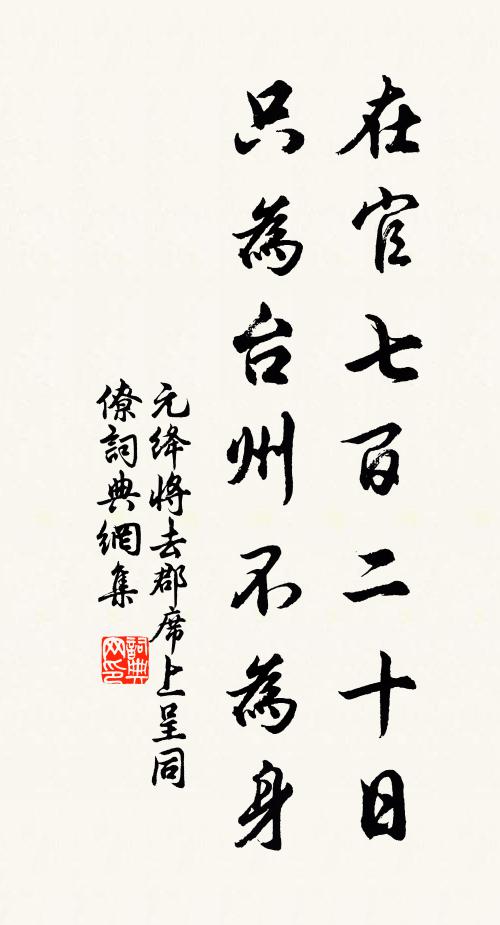 在官七百二十日
只為台州不為身
元絳將去郡席上呈同
僚詞典網集
詞典
网印